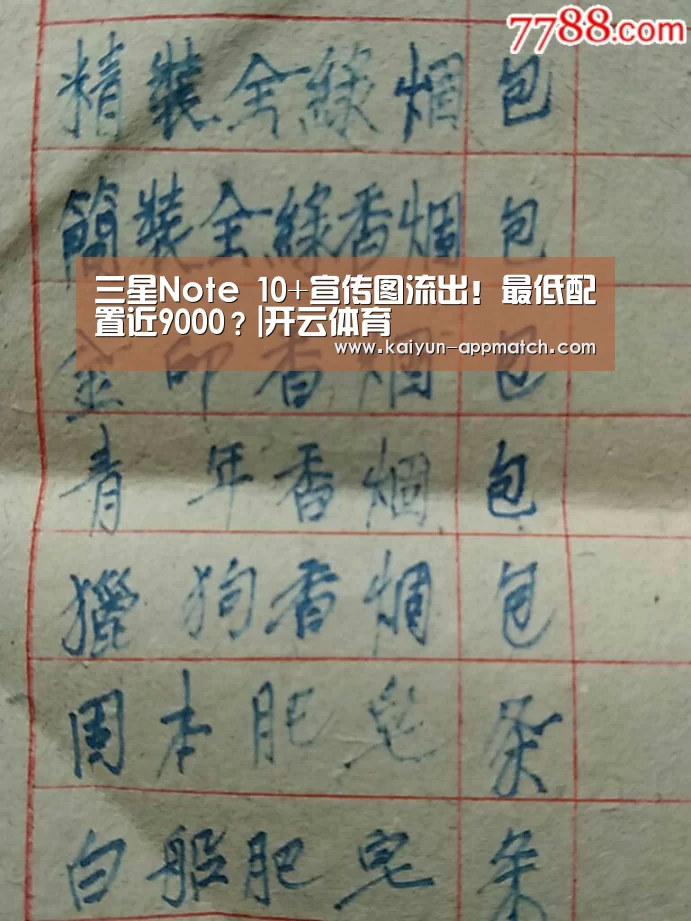 7788.com
精裝全綠烟 包
簡裝全綠香烟 包
三星Note 10+宣传图流出！最低配
置近9000？|开云体育
www.kaiyun-appmatch.com
金印香烟 包
青年香烟 包
獵狗香烟 包
固本肥皂 条
白船肥皂 条